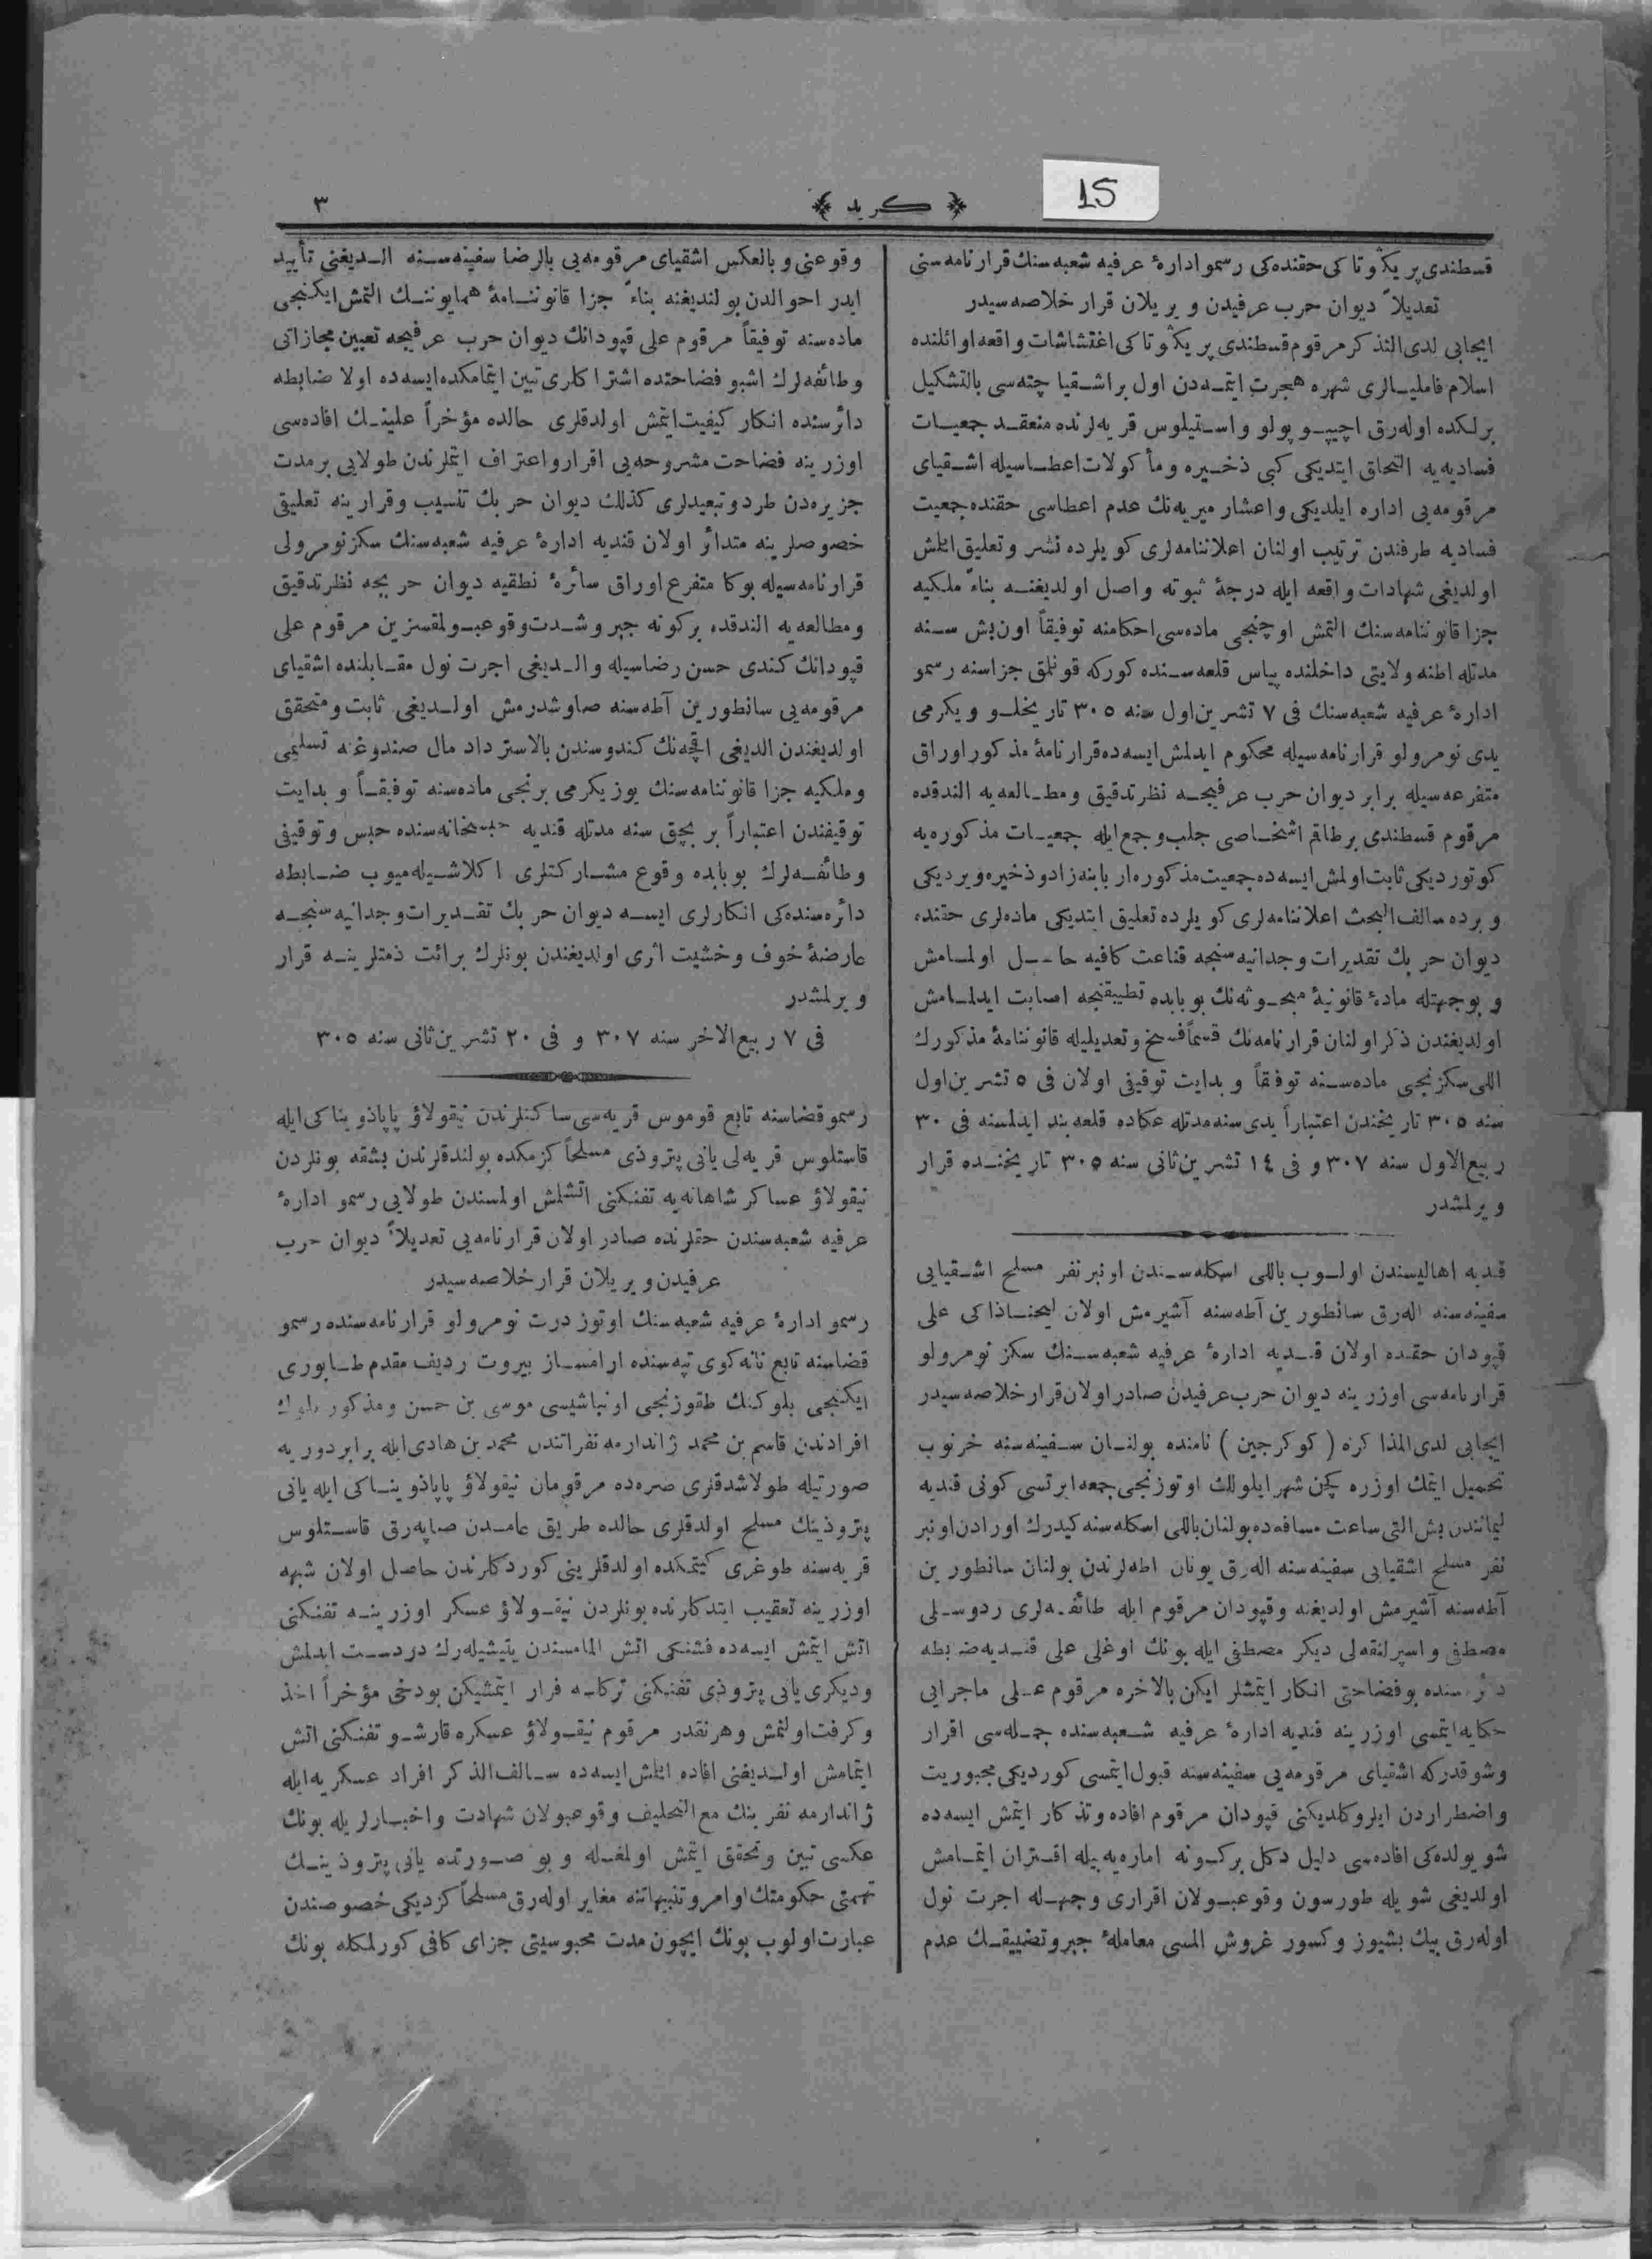 15
﴿ كريد ﴾
٣
قسطندی پریكوتاكی حقنده‌كی رسمو ادارهٔ عرفیه شعبه‌سنك قرارنامه‌سنی
تعدیلاً دیوان حرب عرفیدن ویریلان قرار خلاصه‌سیدر
ایجابی لدی التذكر مرقوم قسطندی پریكوتاكی اغتشاشات واقعه اوائلنده
اسلام فامليالری شهره هجرت ایتمه‌دن اول براشقیا چته‌سی بالتشكیل
برلكده اوله‌رق اچیپوپولو واستیلوس قریه‌لرنده منعقد جمعیات
فسادیه‌یه التحاق ایتدیكی كبی ذخیره ومأكولات اعطاسیله اشقیای
مرقومه‌یی اداره ایلدیكی واعشار میریه‌نك عدم اعطاسی حقنده جمعیت
فسادیه طرفندن ترتیب اولنان اعلاننامه‌لری كویلرده نشر وتعلیق ایلمش
اولدیغی شهادات واقعه ایله درجهٔ ثبوته واصل اولدیغنه بناءً ملكیه
جزا قانوننامه‌سنك التمش اوچنجی ماده‌سی احكامنه توفیقاً اون بش سنه
مدتله اطنه ولایتی داخلنده پیاس قلعه‌سنده كوركه قونلمق جزاسنه رسمو
ادارهٔ عرفیه شعبه‌سنك فی ٧ تشرین اول سنه ٣٠٥ تاریخلو ویكرمی
یدی نومرولو قرارنامه‌سیله محكوم ایدلمش ایسه‌ده قرارنامهٔ مذكور اوراق
متفرعه‌سیله برابر دیوان حرب عرفیجه نظر تدقیق ومطالعه‌یه الندقده
مرقوم قسطندی برطاقم اشخاصی جلب وجمع ایله جمعیات مذكوره‌یه
كوتوردیكی ثابت اولمش ایسه‌ده جمعیت مذكوره اربابنه زاد وذخیره ویردیكی
و برده سالف البحث اعلاننامه‌لری كویلرده تعلیق ایتدیكی ماده‌لری حقنده
دیوان حربك تقدیرات وجدانیه‌سنجه قناعت كافیه حاصل اولمامش
و بوجهتله مادهٔ قانونیهٔ مبحوثه‌نك بوبابده تطبیقنجه اصابت ایدلمامش
اولدیغندن ذكر اولنان قرارنامه‌نك قسماً فسخ وتعدیلیله قانوننامهٔ مذكورك
اللی سكزنجی ماده‌سنه توفیقاً و بدایت توقیفی اولان فی ٥ تشرین اول
سنه ٣٠٥ تاریخندن اعتباراً یدی سنه مدتله عكاده قلعه‌بند ایدلمسنه فی ٣٠
ربیع الاول سنه ٣٠٧ و فی ١٤ تشرین ثانی سنه ٣٠٥ تاریخنده قرار
ویرلمشدر
قندیه اهالیسندن اولوب باللی اسكله‌سندن اونبر نفر مسلح اشقیایی
سفینه‌سنه اله‌رق سانطورین آطه‌سنه آشیرمش اولان لیحناذاكی علی
قپودان حقنده اولان قندیه ادارهٔ عرفیه شعبه‌سنك سكز نومرولو
قرارنامه‌سی اوزرینه دیوان حرب عرفیدن صادر اولان قرار خلاصه‌سیدر
ایجابی لدی المذاكره ( كوكرجین ) نامنده بولنان سفینه‌سنه خرنوب
تحمیل ایتمك اوزره كچن شهر ایلولك اوتوزنجی جمعه‌ایرتسی كونی قندیه
لیمانندن بش التی ساعت مسافه‌ده بولنان باللی اسكله‌سنه كیدرك اورادن اونبر
نفر مسلح اشقیایی سفینه‌سنه اله‌رق یونان اطه‌لرندن بولنان سانطورین
آطه‌سنه آشیرمش اولدیغنه وقپودان مرقوم ایله طائفه‌لری ردوسلی
مصطفی واسپرلنقه‌لی دیكر مصطفی ایله بونك اوغلی علی قندیه ضابطه
دائره‌سنده بوفضاحتی انكار ایتمشلر ایكن بالاخره مرقوم علی ماجرایی
حكایه ایتمسی اوزرینه قندیه ادارهٔ عرفیه شعبه‌سنده جمله‌سی اقرار
وشوقدركه اشقیای مرقومه‌یی سفینه‌سنه قبول ایتمسی كوردیكی مجبوریت
واضطراردن ایلروكلدیكنی قپودان مرقوم افاده وتذكار ایتمش ایسه‌ده
شویولده‌كی افاده‌سی دلیل دكل بركونه اماره‌یه بیله اقتران ایتمامش
اولدیغی شویله طورسون وقوعبولان اقراری وجهله اجرت نول
اوله‌رق بیك بشیوز وكسور غروش المسی معاملهٔ جبر وتضییقك عدم
وقوعنی و بالعكس اشقیای مرقومه‌یی بالرضا سفینه‌سنه الدیغنی تأیید
ایدر احوالدن بولندیغنه بناءً جزا قانوننامهٔ همایوننك التمش ایكنجی
ماده‌سنه توفیقاً مرقوم علی قپودانك دیوان حرب عرفیجه تعیین مجازاتی
وطائفه‌لرك اشبو فضاحتده اشتراكلری تبین ایتمامكده ایسه‌ده اولا ضابطه
دائرسنده انكار كیفیت ایتمش اولدقلری حالده مؤخراً علینك افاده‌سی
اوزرینه فضاحت مشروحه‌یی اقرار واعتراف ایتملرندن طولایی برمدت
جزیره‌دن طرد وتبعیدلری كذلك دیوان حربك تنسیب وقرارینه تعلیق
خصوصلرینه متدائر اولان قندیه ادارهٔ عرفیه شعبه‌سنك سكز نومرولی
قرارنامه‌سیله بوكا متفرع اوراق سائرهٔ نطقیه دیوان حربجه نظر تدقیق
ومطالعه‌یه الندقده بركونه جبر وشدت وقوعبولمقسزین مرقوم علی
قپودانك كندی حسن رضاسیله والدیغی اجرت نول مقابلنده اشقیای
مرقومه‌یی سانطورین آطه‌سنه صاوشدرمش اولدیغی ثابت ومتحقق
اولدیغندن الدیغی اقچه‌نك كندوسندن بالاسترداد مال صندوغنه تسلیمی
وملكیه جزا قانوننامه‌سنك یوز یكرمی برنجی ماده‌سنه توفیقاً و بدایت
توقیفندن اعتباراً بر بچق سنه مدتله قندیه حبسخانه‌سنده حبس وتوقیفی
وطائفه‌لرك بوبابده وقوع مشاركتلری اكلاشیله‌میوب ضابطه
دائره‌سنده‌كی انكارلری ایسه دیوان حربك تقدیرات وجدانیه‌سنجه
عارضهٔ خوف وخشیت اثری اولدیغندن بونلرك برائت ذمتلرینه قرار
ویرلمشدر
فی ٧ ربیع الاخر سنه ٣٠٧ و فی ٢٠ تشرین ثانی سنه ٣٠٥
رسمو قضاسنه تابع قوموس قریه‌سی ساكنلرندن نیقولاؤ پاپاذویناكی ایله
قاستلوس قریه‌لی یانی پتروذی مسلحاً كزمكده بولندقلرندن بشقه بونلردن
نیقولاؤ عساكر شاهانه‌یه تفنكنی اتشلمش اولمسندن طولایی رسمو ادارهٔ
عرفیه شعبه‌سندن حقلرنده صادر اولان قرارنامه‌یی تعدیلاً دیوان حرب
عرفیدن ویریلان قرار خلاصه‌سیدر
رسمو ادارهٔ عرفیه شعبه‌سنك اوتوز درت نومرولو قرارنامه‌سنده رسمو
قضاسنه تابع نانه‌كوی تپه‌سنده ارامساز بیروت ردیف مقدم طابوری
ایكنجی بلوكنك طقوزنجی اونباشیسی موسی بن حسن ومذكور بلوك
افرادندن قاسم بن محمد ژاندارمه نفراتندن محمد بن هادی ایله برابر دوریه
صورتیله طولاشدقلری صره‌ده مرقومان نیقولاؤ پاپاذویناكی ایله یانی
پتروذینك مسلح اولدقلری حالده طریق عامدن صاپه‌رق قاستلوس
قریه‌سنه طوغری كیتمكده اولدقلرینی كوردكلرندن حاصل اولان شبهه
اوزرینه تعقیب ایتدكلرنده بونلردن نیقولاؤ عسكر اوزرینه تفنكنی
اتش ایتمش ایسه‌ده فشنكی اتش المامسندن یتیشیله‌رك دردست ایدلمش
ودیكری یانی پتروذی تفنكنی تركله فرار ایتمشیكن بودخی مؤخراً اخذ
وكرفت اولنمش وهرنقدر مرقوم نیقولاؤ عسكره قارشو تفنكنی اتش
ایتمامش اولدیغنی افاده ایلمش ایسه‌ده سالف الذكر افراد عسكریه ایله
ژاندارمه نفرینك مع التحلیف وقوعبولان شهادت واخبارلریله بونك
عكسی تبین وتحقق ایتمش اولمغله و بو صورتده یانی پتروذینك
تهمتی حكومتك اوامر وتنبیهاتنه مغایر اوله‌رق مسلحاً كزدیكی خصوصندن
عبارت اولوب بونك ایچون مدت محبوسیتی جزای كافی كورلمكله بونك